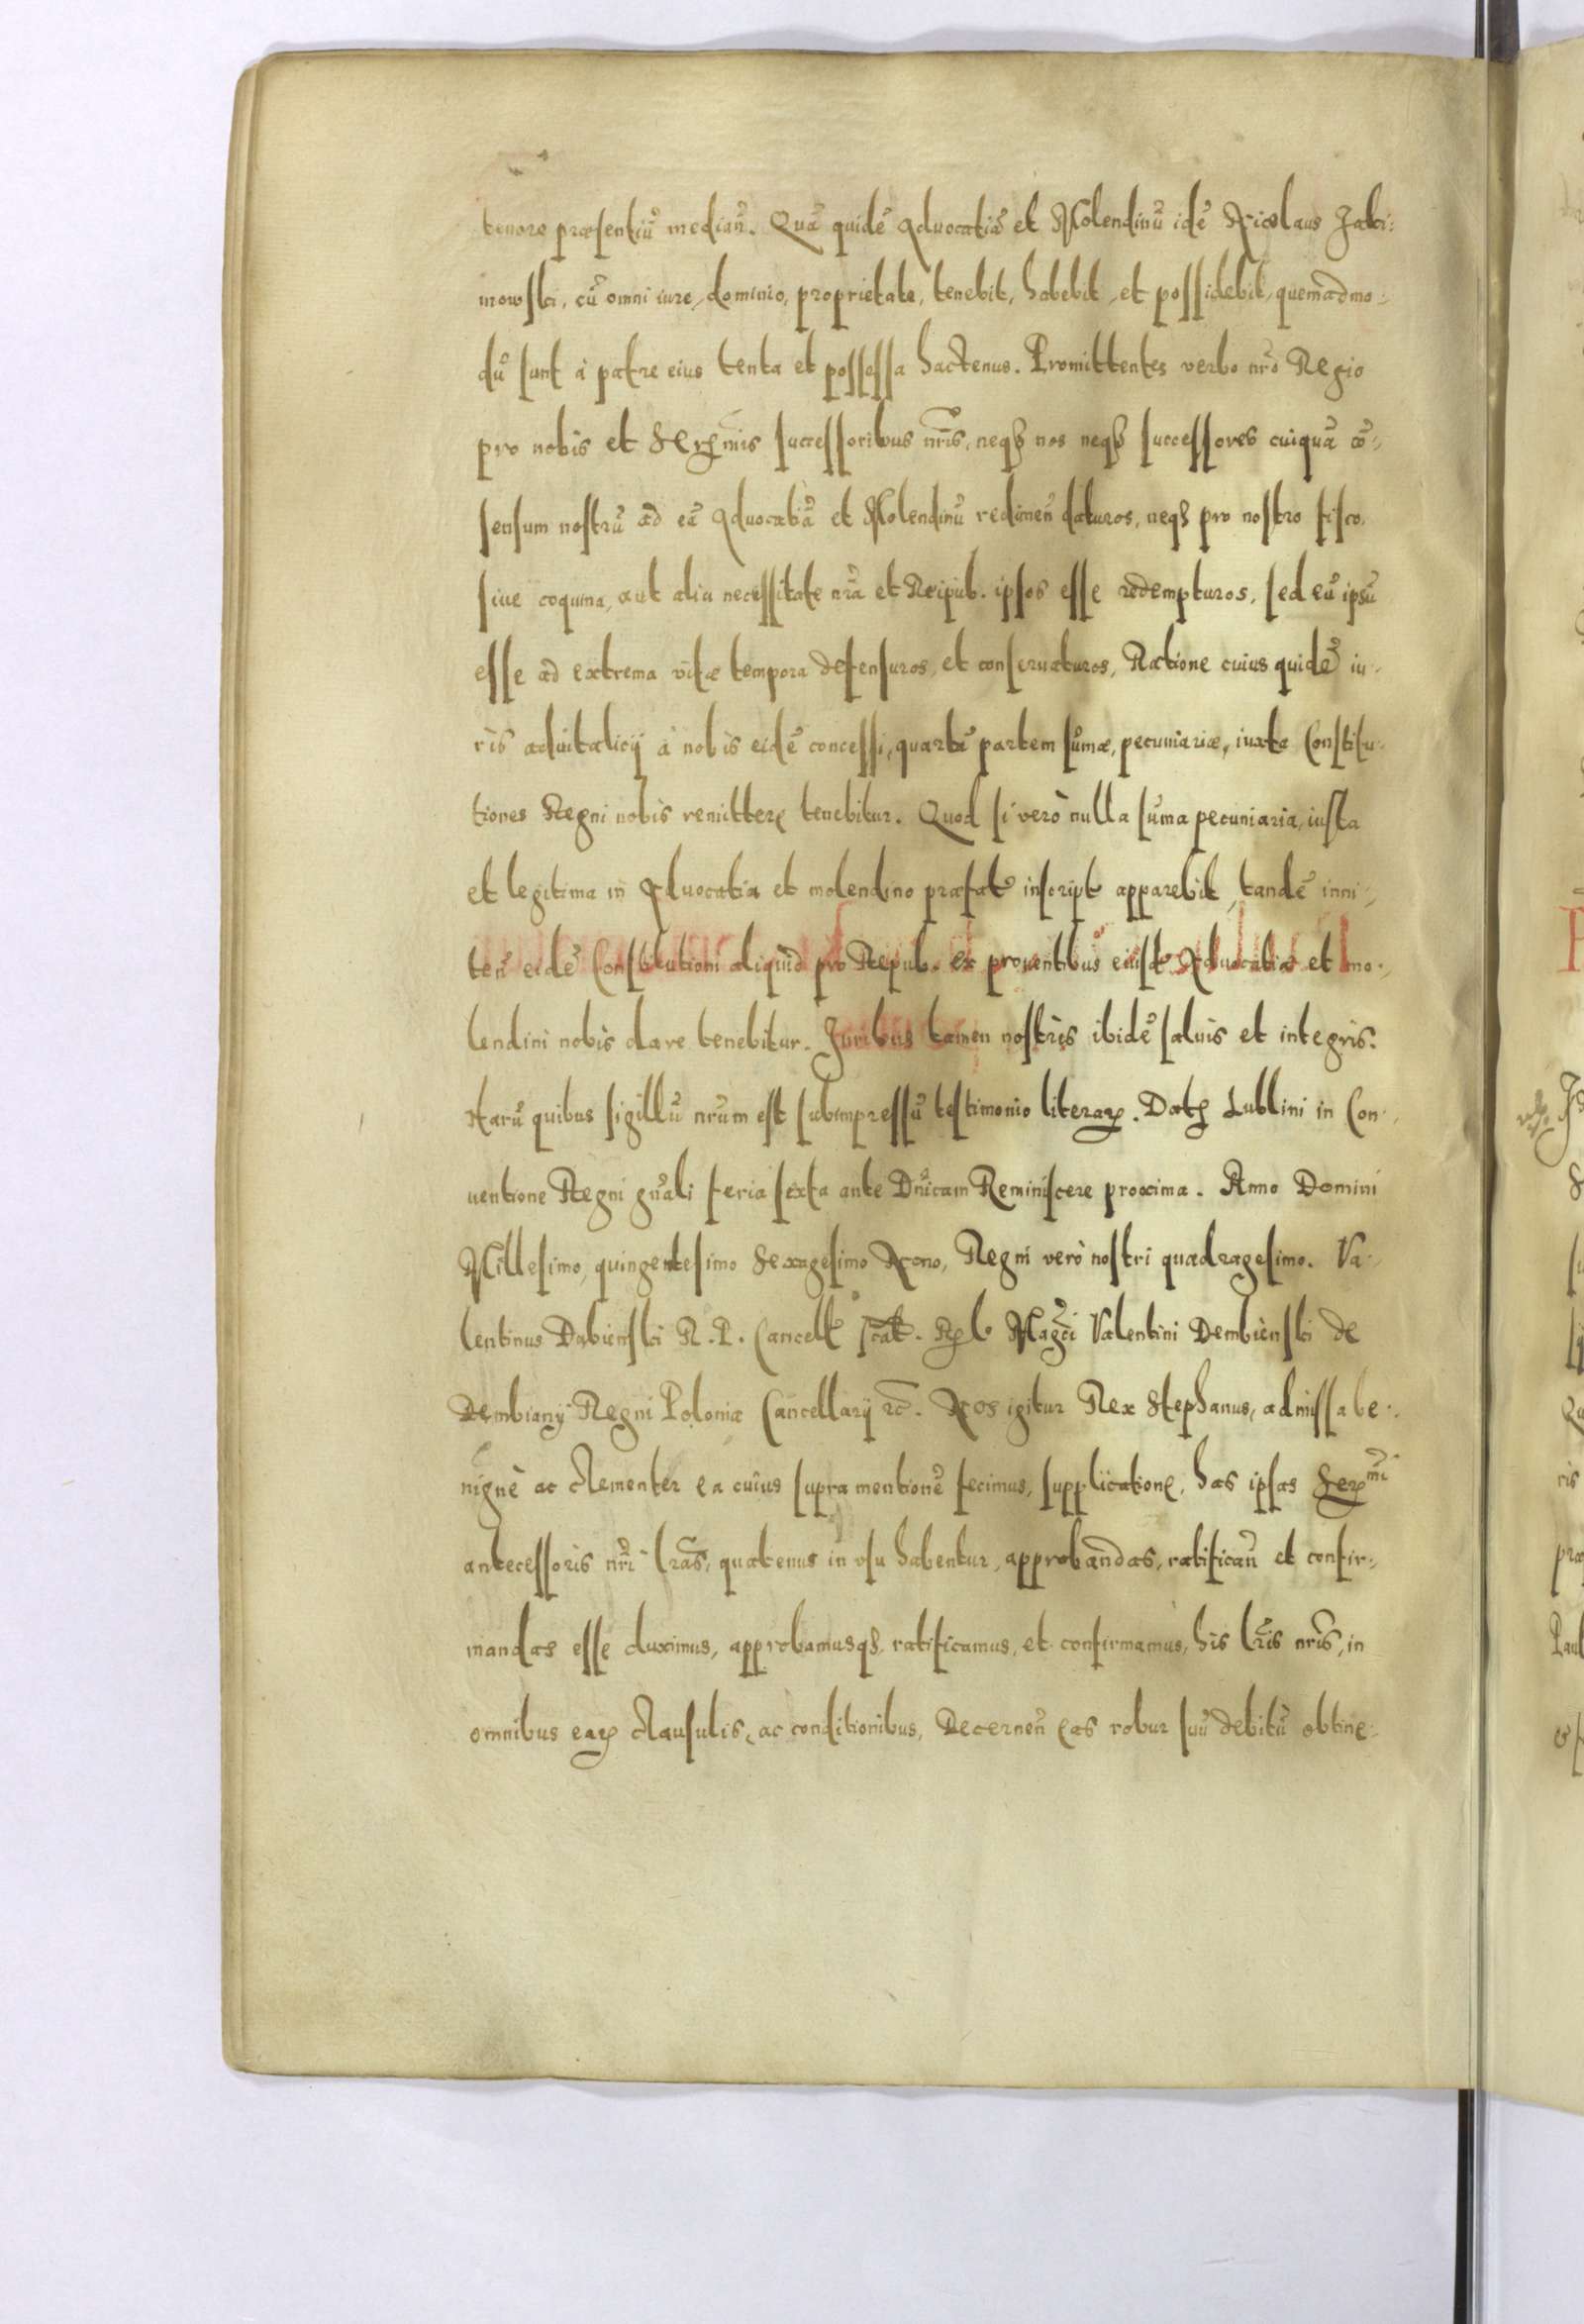 tenore præsentiũ mediañ. Quã quidẽ Aduocatiã et Molendinũ idẽ Nicolaus Jaki-
mowski, cũ omni iure, dominio, proprietate, tenebit, habebit, et possidebit, quemadmo-
dũ sunt à patre eius tenta et possessa hactenus. Promittentes verbo nr̃o Regio
pro nobis et Serꝫmis successoribus nr̃is, neqꝫ nos neqꝫ successores cuiquã cõ-
sensum nostrũ ad eã Aduocatiã et Molendinũ redimeñ daturos, neqꝫ pro nostro fisco,
siue coquina, aut alia necessitate nr̃a et Reipub. ipsos esse redempturos, sed eũ ipsũ
esse ad extrema vitæ tempora defensuros, et conseruaturos, Ratione cuius quidẽ iu-
ris aduitalicij à nobis eidẽ concessi, quartã partem sum̃æ, pecuniariæ, iuxta Constitu-
tiones Regni nobis remittere tenebitur. Quod si verò nulla sum̃a pecuniaria, iusta
et legitima in Aduocatia et molendino præfat̃ inscript̃ apparebit, tandẽ inni-
teñ eidẽ Constitutioni aliquid pro Repub. ex prouentibus eiusd̃ Aduocatiæ et mo-
lendini nobis dare tenebitur. Juribus tamen nostris ibidẽ saluis et integris.
Harũ quibus sigillũ nr̃um est subimpressũ testimonio literarꝫ. Datꝫ Lublini in Con-
uentione Regni gñali feria sexta ante Dñicam Reminiscere proxima. Anno Domini
Millesimo, quingentesimo Sexagesimo Nono, Regni verò nostri quadragesimo. Va-
lentinus Dabienski R. P. Cancell̃ s̃cat̃. Rel̃o Mag̃ci Valentini Dembienski de
Dembiany Regni Poloniæ Cancellarij ꝛc̃. Nos igitur Rex Stephanus, admissa be-
nignè ac clementer ea cuius supra mentionẽ fecimus, supplicatione, has ipsas Serꝫmi
antecessoris nr̃i lr̃as, quatenus in vsu habentur, approbandas, ratificañ et confir-
mandas esse duximus, approbamusqꝫ ratificamus, et confirmamus, his lr̃is nr̃is, in
omnibus earꝫ clausulis, ac conditionibus, Decerneñ eas robur suũ debitũ obtine-